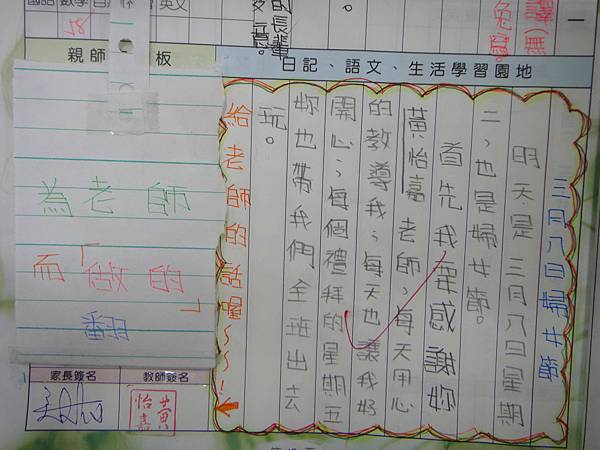 國語 數學 英文
58
的長輩
意。
一
親師 板
日記、語文、生活學習園地
三月八日婦女節
明天是三月八日星期
二，也是婦女節。
首先我要感謝妳
黃怡嘉老師，每天用心
的教導我，每天也讓我好
開心，每個禮拜的星期五
妳也帶我們全班出去
玩。
給老師的話喔~~！
為老師
而「做的」
翻
家長簽名
教師簽名
黃怡嘉